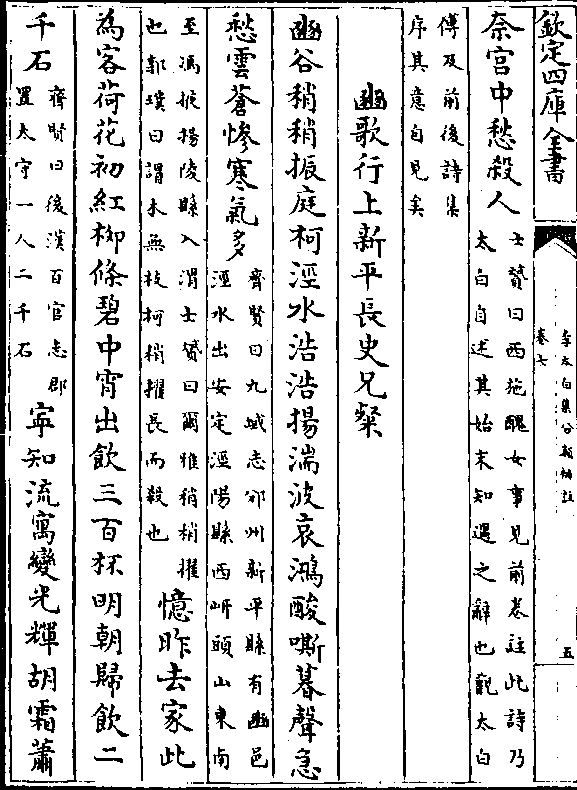 欽定四庫全書
李太白集分類補註
卷七
五
奈宫中愁殺人
士贇曰西施醜女事見前卷註此詩乃
太白自述其始末知遇之辭也觀太白
傳及前後詩集
序其意自見矣
豳歌行上新平長史兄粲
豳谷稍稍振庭柯涇水浩浩揚湍波哀鴻酸嘶暮聲急
愁雲蒼慘寒氣多
齊賢曰九域志邠州新平縣有豳邑
涇水出安定涇陽縣西岍頭山東南
至馮掖揚陵縣入渭士贇曰爾雅稍梢擢
也郭璞曰謂木無枝柯梢擢長而殺也
憶昨去家此
為客荷花初紅栁條碧中宵出飲三百杯明朝歸飲二
千石
齊賢曰後漢百官志郡
置太守一人二千石
寜知流寓變光輝胡霜蕭